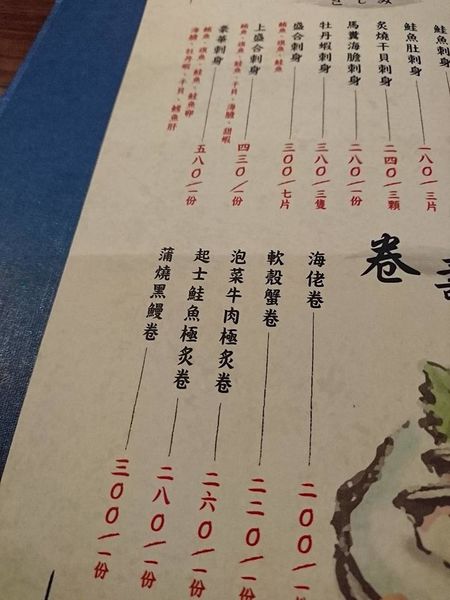 さしみ
鮭魚刺身
鮭魚肚刺身 一八〇/三片
炙燒干貝刺身 二四〇/三顆
馬糞海膽刺身 二八〇/一份
牡丹蝦刺身 三八〇/三隻
盛合刺身 三〇〇/七片
鮪魚、旗魚、鮭魚
上盛合刺身 四三〇/一份
鮪魚、旗魚、鮭魚、干貝、海膽、甜蝦
豪華刺身 五八〇/一份
鮪魚、旗魚、鮭魚、鮭魚卵
海膽、牡丹蝦、干貝、鱈魚肝
壽
卷
海佬卷 二〇〇/一份
軟殼蟹卷 二二〇/一份
泡菜牛肉極炙卷 二六〇/一份
起士鮭魚極炙卷 二八〇/一份
蒲燒黑鰻卷 三〇〇/一份